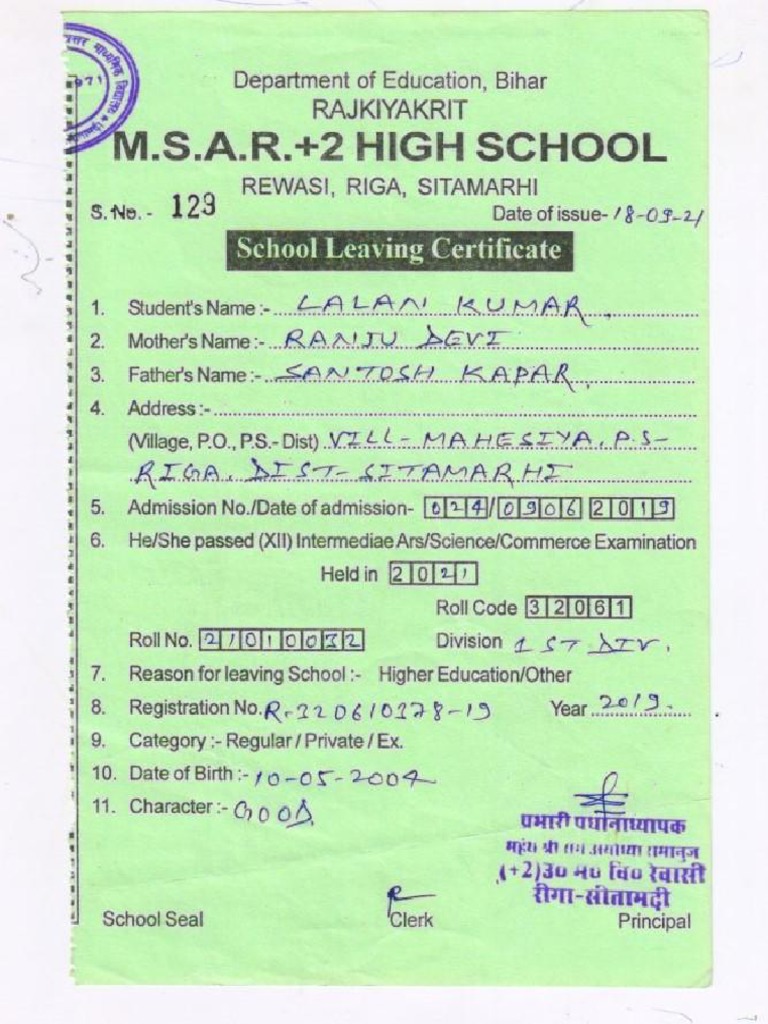 Department of Education, Bihar
RAJKIYAKRIT
M.S.A.R.+2 HIGH SCHOOL
REWASI, RIGA, SITAMARHI
S. No. - 123
Date of issue- 18-09-21
School Leaving Certificate
1. Student's Name :- LALAN KUMAR.
2. Mother's Name :- RANJU DEVI
3. Father's Name :- SANTOSH KAPAR.
4. Address :-
(Village, P.O., P.S.- Dist) VILL- MAHESIYA, P.S-
RIGA, DIST- SITAMARHI
5. Admission No./Date of admission- 024/0906 2019
6. He/She passed (XII) Intermediae Ars/Science/Commerce Examination
Held in 2021
Roll Code 32061
Roll No. 21010032 Division 1ST DIV.
7. Reason for leaving School :- Higher Education/Other
8. Registration No. R-320610378-19 Year 2019.
9. Category :- Regular / Private / Ex.
10. Date of Birth :- 10-05-2004
11. Character :- GOOD
प्रभारी प्रधानाध्यापक
(+2) उ० म० वि० रेवासी
रीगा-सीतामढ़ी
School Seal Clerk Principal